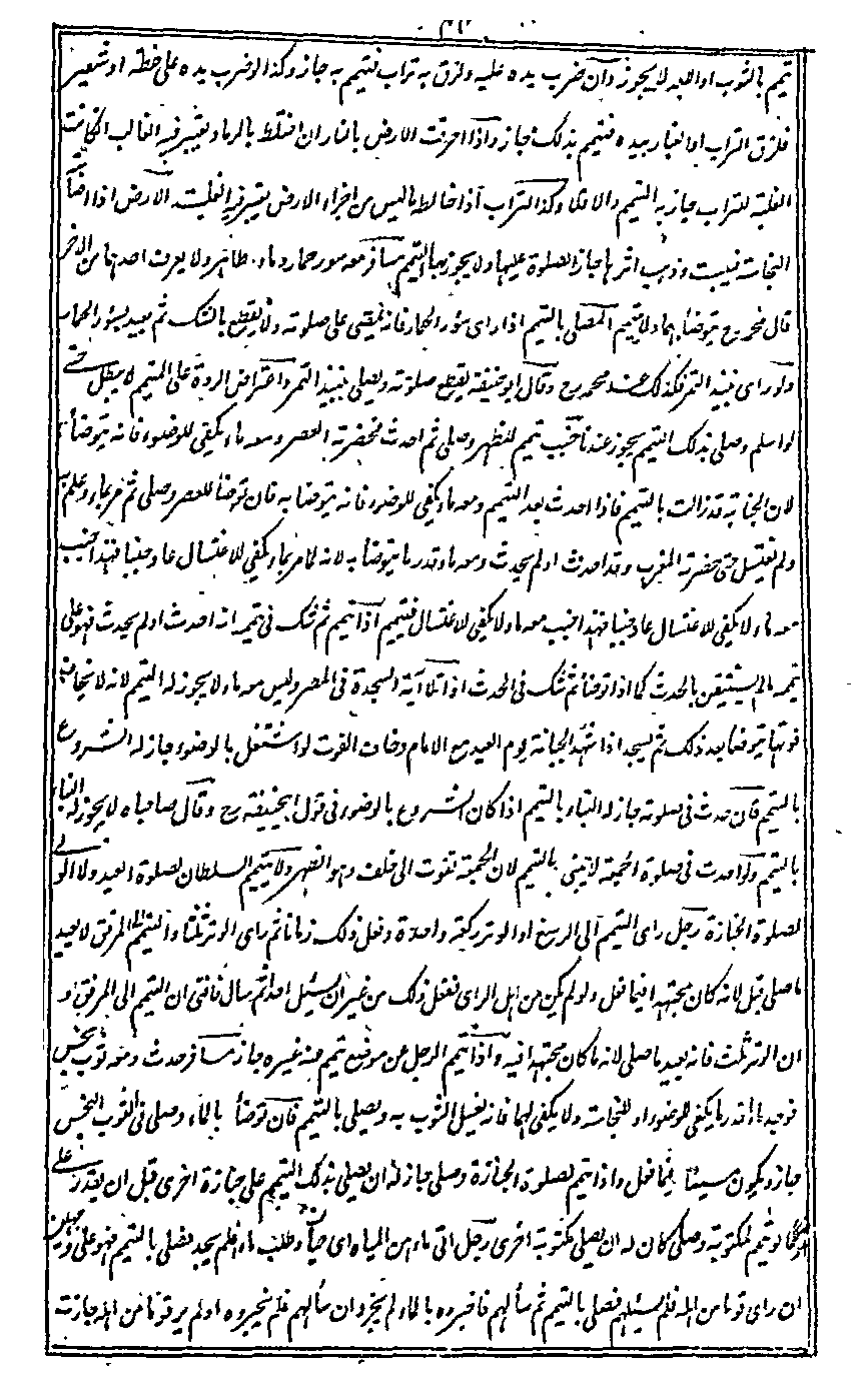 تيمم بالثوب او اللبد لا يجوز وان ضرب يده عليه ولزق به تراب فتيمم به جاز وكذا لو ضرب يده على حنطة او شعير
فلزق التراب او الغبار بيده فتيمم بذلك جاز واذا احرقت الارض بالنار ان اختلط بالرماد يعتبر فيه الغالب ان كانت
الغلبة للتراب جاز به التيمم والا فلا وكذا التراب اذا خالطه ما ليس من اجزاء الارض يعتبر فيه الغلبة الارض اذا اصابتها
النجاسة فيبست وذهب اثرها جاز الصلوة عليها ولا يجوز بها التيمم مسافر معه سور حمار وماء طاهر ولا يعرف احدهما من الاخر
قال محمد رح يتوضأ بهما ولا يتيمم المصلى بالتيمم اذا راى سؤر الحمار فانه يمضى على صلوته ولا يقطع بالشك ثم يعيد بسؤر الحمار
ولو راى نبيذ التمر فكذلك عند محمد رح وقال ابو حنيفة يقطع صلوته ويصلى بنبيذ التمر واعتراض الردة على التيمم لا يبطل حتى
لو اسلم وصلى بذلك التيمم يجوز عندنا جنب تيمم للظهر وصلى ثم احدث فحضرته العصر ومعه ماء يكفى للوضوء فانه يتوضأ به
لان الجنابة قد زالت بالتيمم فاذا احدث بعد التيمم ومعه ماء يكفى للوضوء فانه يتوضا به فان توضأ للعصر وصلى ثم مر بماء وعلم به
ولم يغتسل حتى حضرته المغرب وقد احدث او لم يحدث ومعه ماء قدر ما يتوضأ به لانه لما مر بماء يكفى للاغتسال عاد جنبا فهذا جنب
معه ماء لا يكفى للاغتسال عاد جنبا فهذا جنب معه ماء ولا يكفى للاغتسال فيتيمم اذا تيمم ثم شك فى تيممه انه احدث او لم يحدث فهو على
تيممه ما لم يستيقن بالحدث كما اذا توضأ ثم شك فى الحدث اذا تلا آية السجدة فى المصر وليس معه ماء ولا يجوز له التيمم لانه لا يخاف
فوتها يتوضا بعد ذلك ثم يسجد اذا شهد الجبانة يوم العيد مع الامام وخاف الفوت لو اشتغل بالوضوء جاز له الشروع
بالتيمم فان حدث فى صلوته جاز له البناء بالتيمم اذا كان الشروع بالوضوء فى قول ابى حنيفة رح وقال صاحباه لا يجوز له البناء
بالتيمم ولو احدث فى صلوة الجمعة لا يبنى بالتيمم لان الجمعة تفوت الى خلف وهو الظهر ولا يتيمم السلطان لصلوة العيد ولا الولى
لصلوة الجنازة رجل راى التيمم الى الرسغ او الوتر ركعة واحدة وفعل ذلك زمانا ثم راى الوتر ثلثا والتيمم الى المرفق لا يعيد
ما صلى قبل لانه كان مجتهدا فيما فعل ولو لم يكن من اهل الراى ففعل ذلك من غير ان يسئل احدا ثم سال فافتى ان التيمم الى المرفق او
ان الوتر ثلث فانه يعيد ما صلى لانه ما كان مجتهدا فيه واذا تيمم الرجل عن موضع تيمم منه غيره جاز مسافر حدث ومعه ثوب نجس
فوجد ماء قدر ما يكفى للوضوء او للنجاسة ولا يكفى لهما فانه يغسل الثوب به ويصلى بالتيمم فان توضأ بالماء وصلى فى الثوب النجس
جاز ويكون مسيئا فيما فعل واذا تيمم لصلوة الجنازة وصلى جاز له ان يصلى بذلك التيمم على جنازة اخرى قبل ان يقدر على
الوضوء كما لو تيمم لمكتوبة وصلى كان له ان يصلى مكتوبة اخرى رجل اتى ماء من المياه اى حيا وطلب ماء فلم يجد فصلى بالتيمم فهو على وجهين
ان راى قوما من اهله فلم يسئلهم فصلى بالتيمم ثم سألهم فاخبروه بالماء لم يجز وان سألهم فلم يخبروه او لم ير قوما من اهله جازت